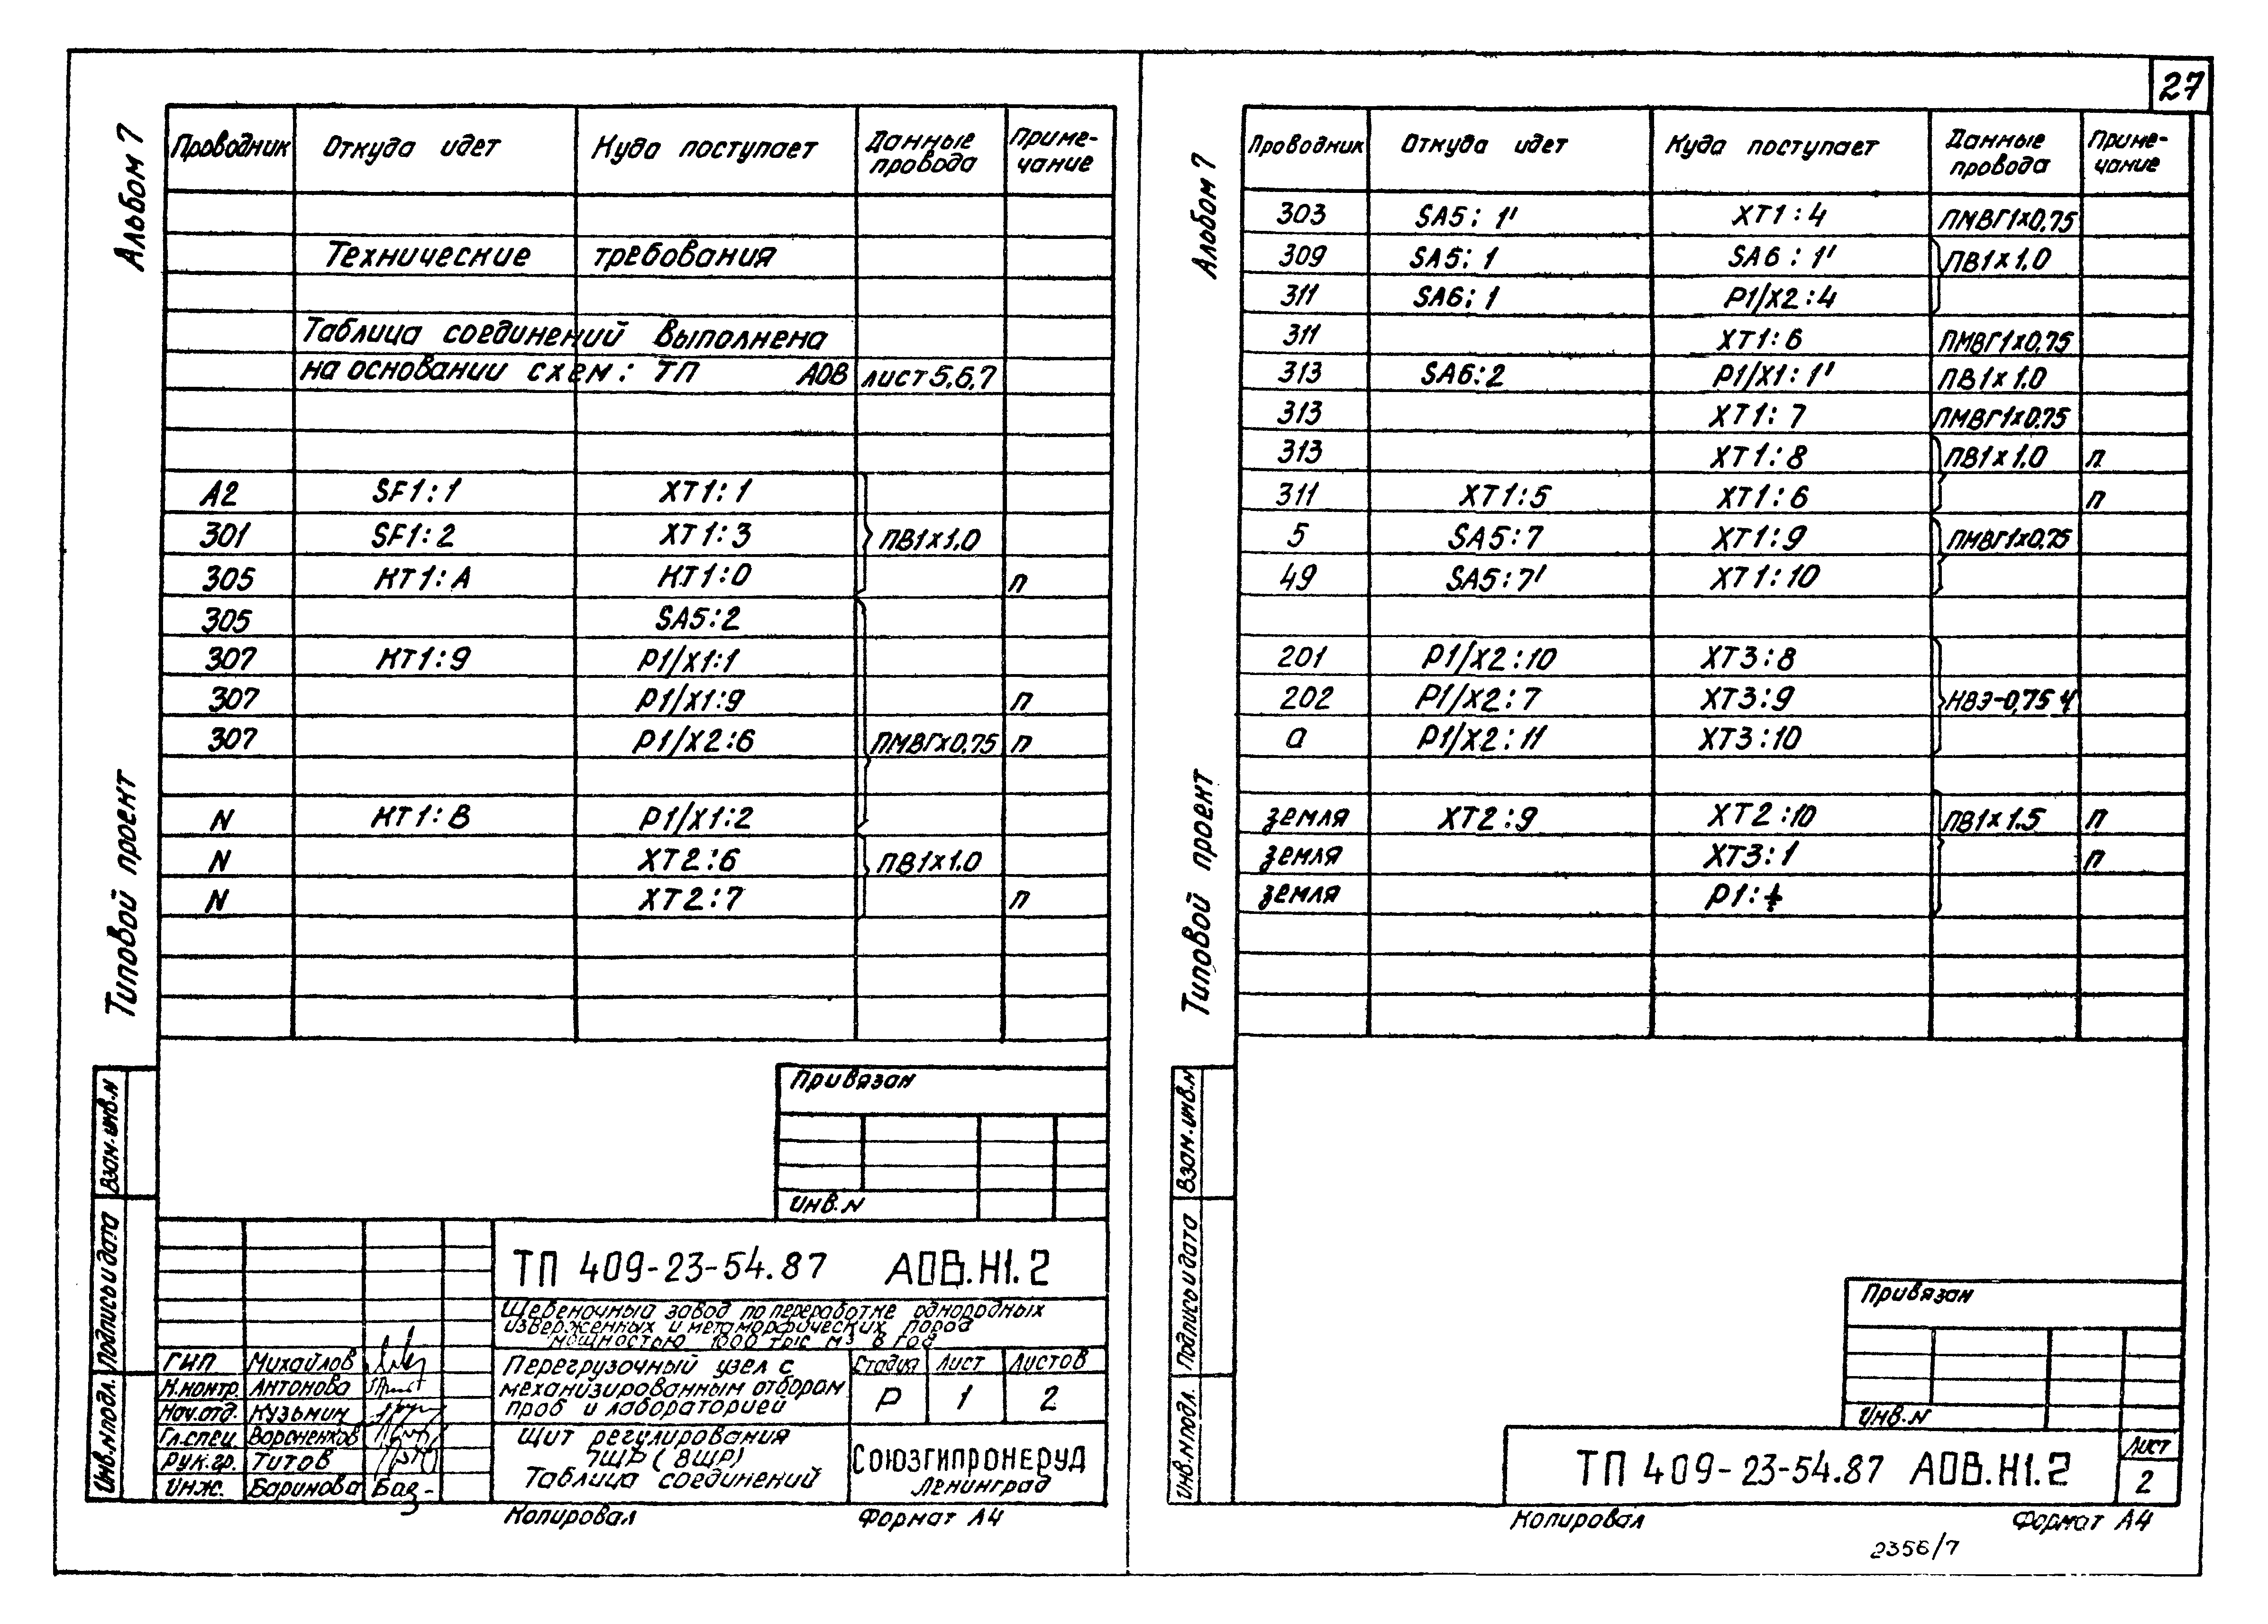 27
Альбом 7
Типовой проект
Проводник Откуда идет Куда поступает Данные провода Приме-чание
Технические требования
Таблица соединений выполнена
на основании схем: ТП АОВ лист 5,6,7
А2 SF1:1 XT1:1
301 SF1:2 XT1:3 ПВ1х1.0
305 КТ1:А КТ1:0 п
305 SA5:2
307 КТ1:9 Р1/Х1:1
307 Р1/Х1:9 п
307 Р1/Х2:6 ПМВГх0,75 п
N КТ1:В Р1/Х1:2
N ХТ2:6 ПВ1х1.0
N ХТ2:7 п
Привязан
Инв.N
Взам.инв.N
Подпись и дата
Инв.N подл.
ТП 409-23-54.87 АОВ.Н1.2
Щебеночный завод по переработке однородных
изверженных и метаморфических пород
мощностью 1000 тыс м³ в год
ГИП Михайлов
Н.контр. Антонова
Нач.отд. Кузьмин
Гл.спец. Вороненков
Рук.гр. Титов
Инж. Баринова
Перегрузочный узел с
механизированным отбором
проб и лабораторией
Стадия Лист Листов
Р 1 2
Щит регулирования
7ЩР (8ЩР)
Таблица соединений
Союзгипронеруд
Ленинград
Копировал Формат А4
Альбом 7
Типовой проект
Проводник Откуда идет Куда поступает Данные провода Приме-чание
303 SA5:1' XT1:4 ПМВГ1х0,75
309 SA5:1 SA6:1' ПВ1х1.0
311 SA6:1 Р1/Х2:4
311 XT1:6 ПМВГ1х0,75
313 SA6:2 Р1/Х1:1' ПВ1х1.0
313 XT1:7 ПМВГ1х0.75
313 XT1:8 ПВ1х1.0 п
311 XT1:5 XT1:6 п
5 SA5:7 XT1:9 ПМВГ1х0,75
49 SA5:7' XT1:10
201 Р1/Х2:10 XT3:8
202 Р1/Х2:7 XT3:9 НВЭ-0,75 4
а Р1/Х2:11 XT3:10
земля XT2:9 XT2:10 ПВ1х1.5 п
земля XT3:1 п
земля Р1:⏚
Привязан
Инв.N
Взам.инв.N
Подпись и дата
Инв.N подл.
ТП 409-23-54.87 АОВ.Н1.2
Лист
2
Копировал Формат А4
2356/7